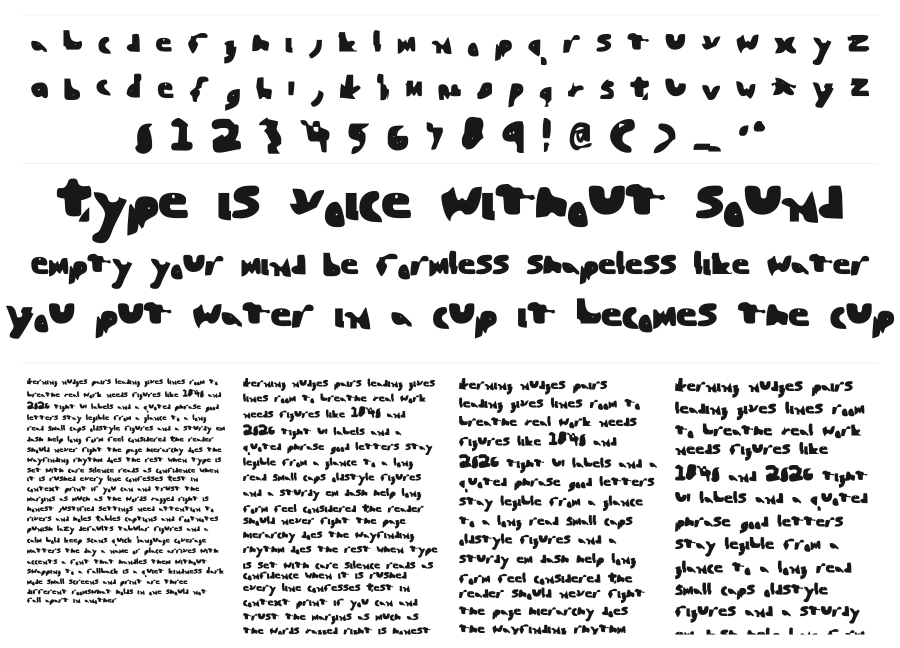 a b c d e f g h i j k l m n o p q r s t u v w x y z
a b c d e f g h i j k l m n o p q r s t u v w x y z
0 1 2 3 4 5 6 7 8 9 ! @ ( ) _ "
type is voice without sound
empty your mind be formless shapeless like water
you put water in a cup it becomes the cup
kerning nudges pairs leading gives lines room to
breathe real work needs figures like 1048 and
2026 tight ui labels and a quoted phrase good
letters stay legible from a glance to a long
read small caps oldstyle figures and a sturdy em
dash help long form feel considered the reader
should never fight the page hierarchy does the
wayfinding rhythm does the rest when type is
set with care silence reads as confidence when
it is rushed every line confesses test in
context print if you can and trust the
margins as much as the words ragged right is
honest justified settings need attention to
rivers and holes tables captions and footnotes
punish lazy defaults tabular figures and a
calm bold keep scans quick language coverage
matters the day a name or place arrives with
accents a font that handles them without
swapping to a fallback is a quiet kindness dark
mode small screens and print are three
different rooms what holds in one should not
fall apart in another
kerning nudges pairs leading gives
lines room to breathe real work
needs figures like 1048 and
2026 tight ui labels and a
quoted phrase good letters stay
legible from a glance to a long
read small caps oldstyle figures
and a sturdy em dash help long
form feel considered the reader
should never fight the page
hierarchy does the wayfinding
rhythm does the rest when type
is set with care silence reads as
confidence when it is rushed
every line confesses test in
context print if you can and
trust the margins as much as
the words ragged right is honest
kerning nudges pairs
leading gives lines room to
breathe real work needs
figures like 1048 and
2026 tight ui labels and a
quoted phrase good letters
stay legible from a glance
to a long read small caps
oldstyle figures and a
sturdy em dash help long
form feel considered the
reader should never fight
the page hierarchy does
the wayfinding rhythm
kerning nudges pairs
leading gives lines room
to breathe real work
needs figures like
1048 and 2026 tight
ui labels and a quoted
phrase good letters
stay legible from a
glance to a long read
small caps oldstyle
figures and a sturdy
em dash help long form